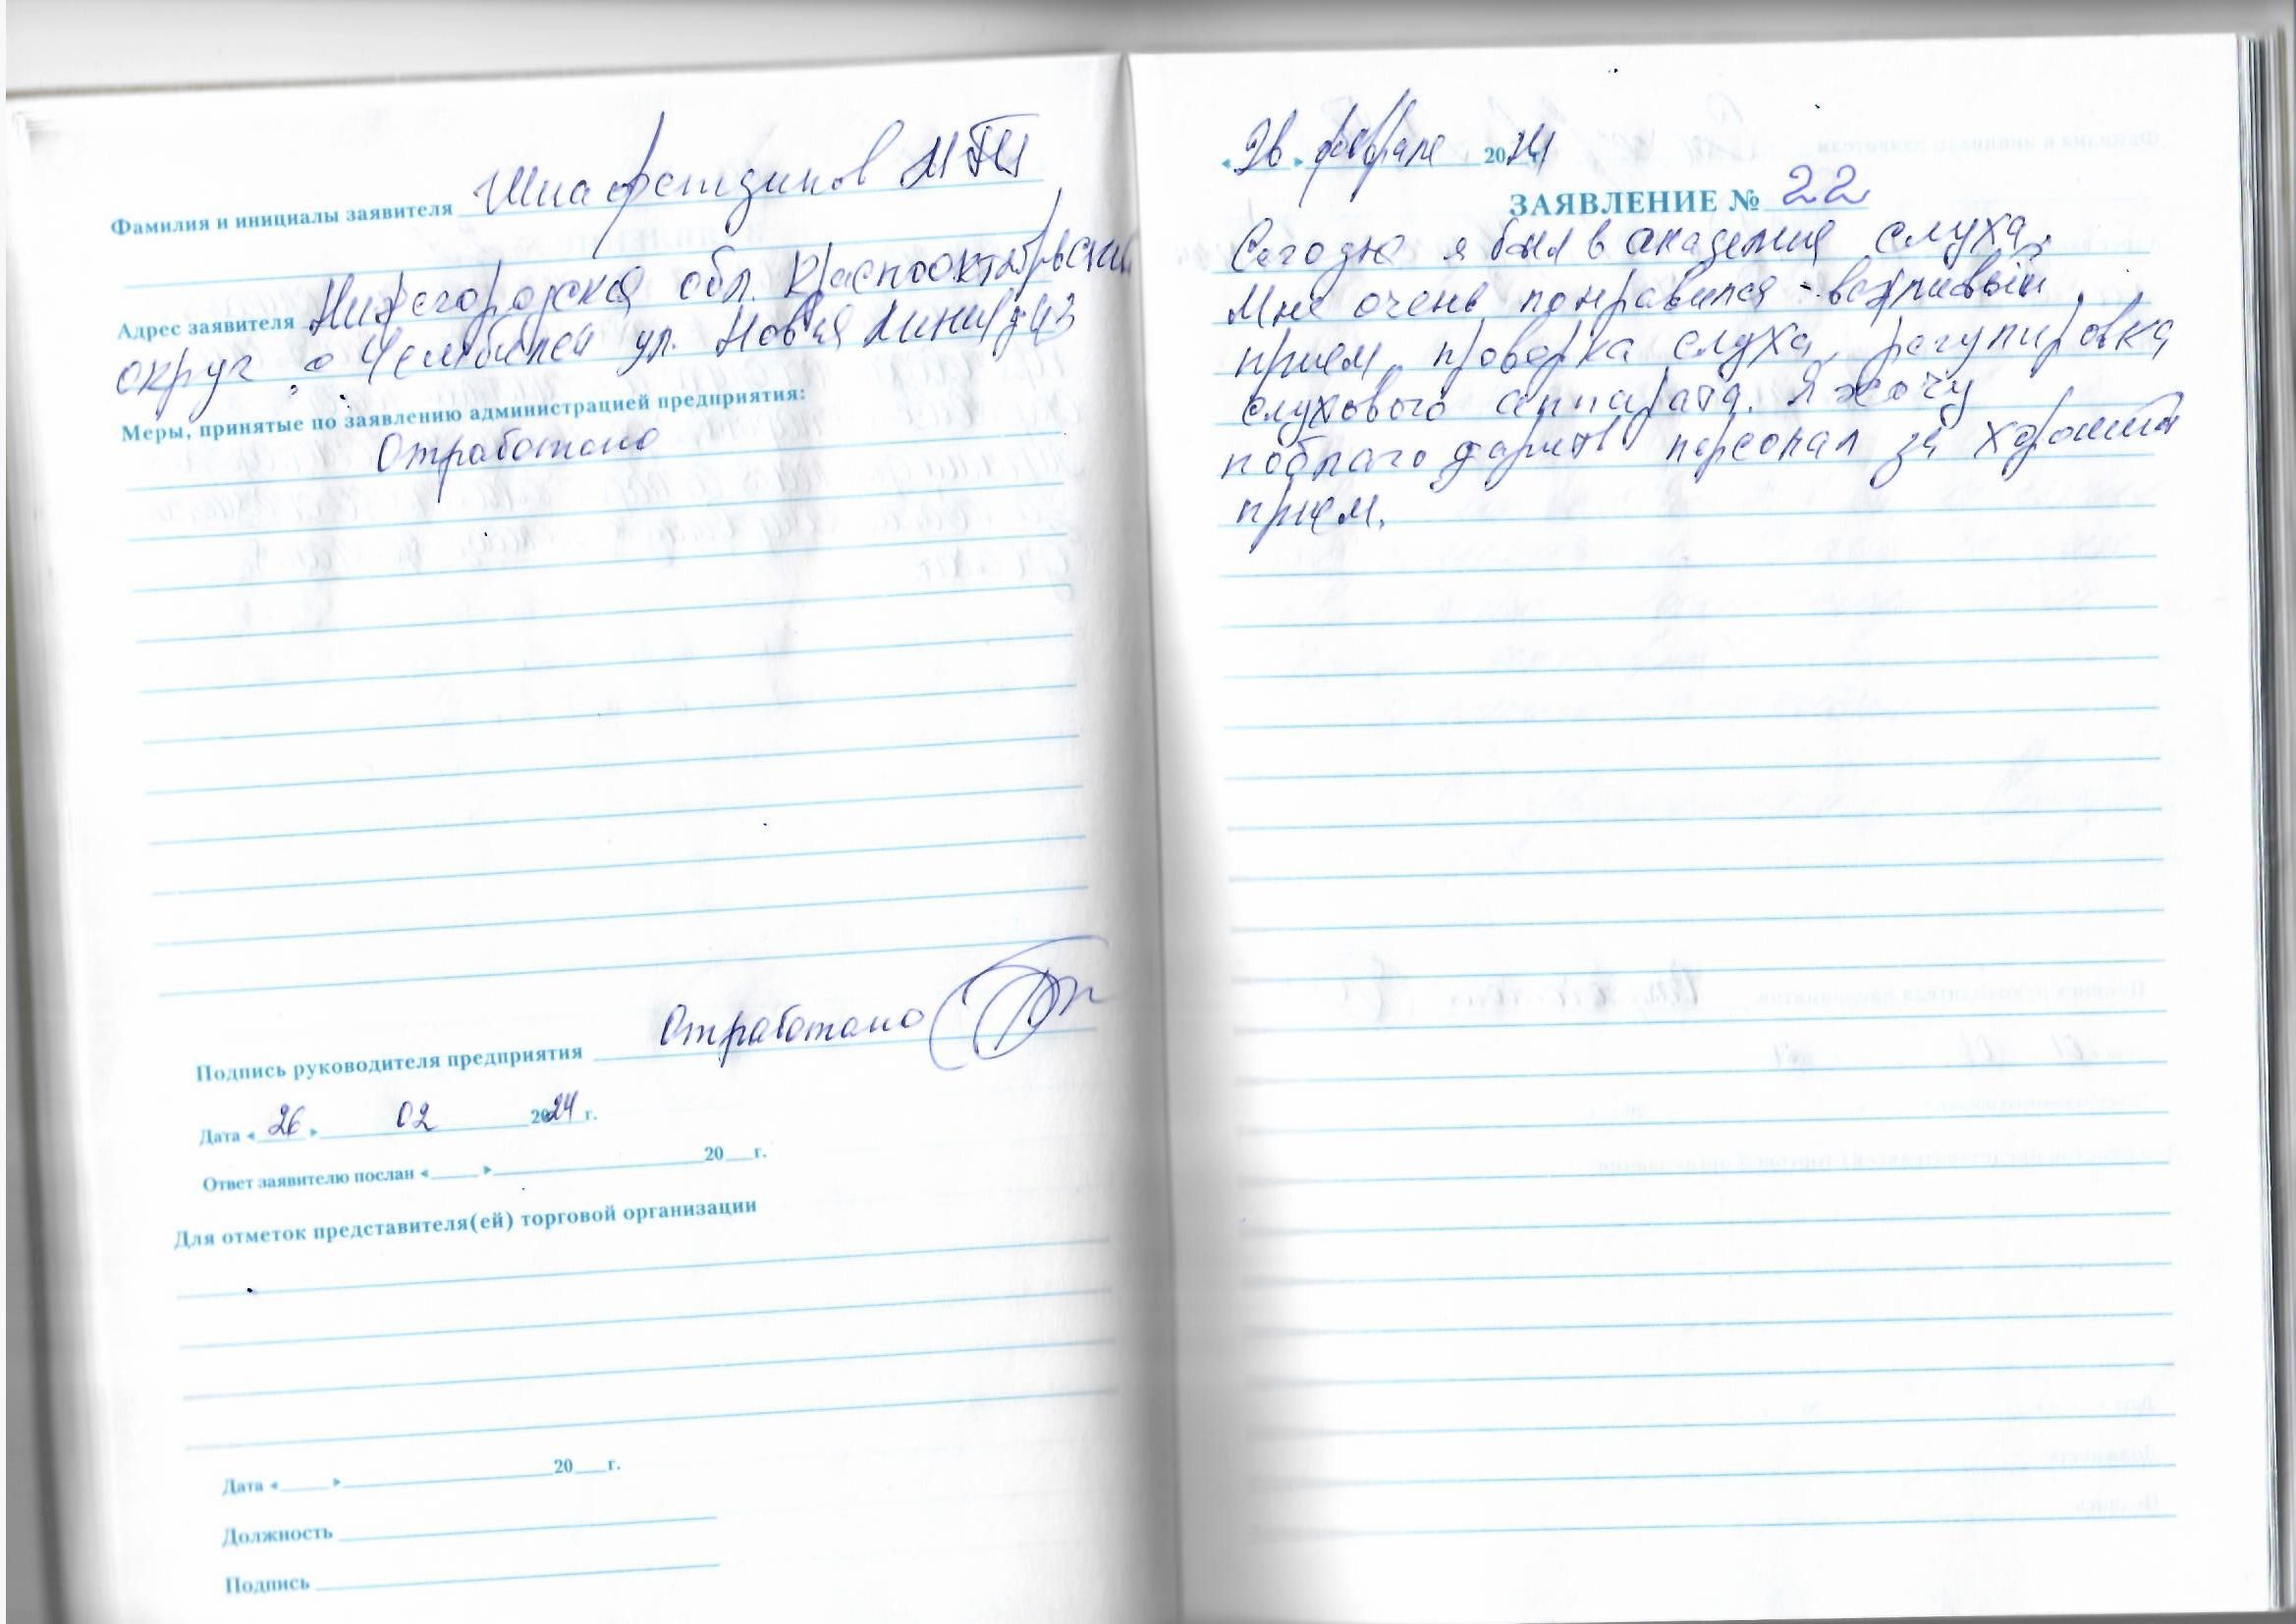 Фамилия и инициалы заявителя Шиафетдинов
Адрес заявителя Нижегородская обл. Краснооктябрьский
округ с Чембилей ул. Новая Линия д43
Меры, принятые по заявлению администрацией предприятия:
Отработано
Подпись руководителя предприятия Отработано
Дата «26» 02 2024 г.
Ответ заявителю послан «____» ____ 20__г.
Для отметок представителя(ей) торговой организации
Дата «____» ____ 20__г.
Должность
Подпись
«26» феврале 2024
ЗАЯВЛЕНИЕ № 22
Сегодю я был в академия слуха.
Мне очень понравился - вежливый
прием, проверка слуха, регулировка
слухового аппарата. Я хочу
поблагодарить персонал за хороший
прием.